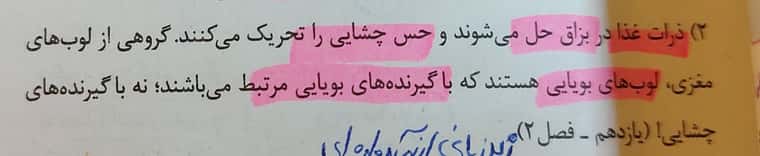 ۲) ذرات غذا در بزاق حل می‌شوند و حس چشایی را تحریک می‌کنند. گروهی از لوب‌های
مغزی، لوب‌های بویایی هستند که با گیرنده‌های بویایی مرتبط می‌باشند؛ نه با گیرنده‌های
چشایی! (یازدهم ـ فصل ۲)